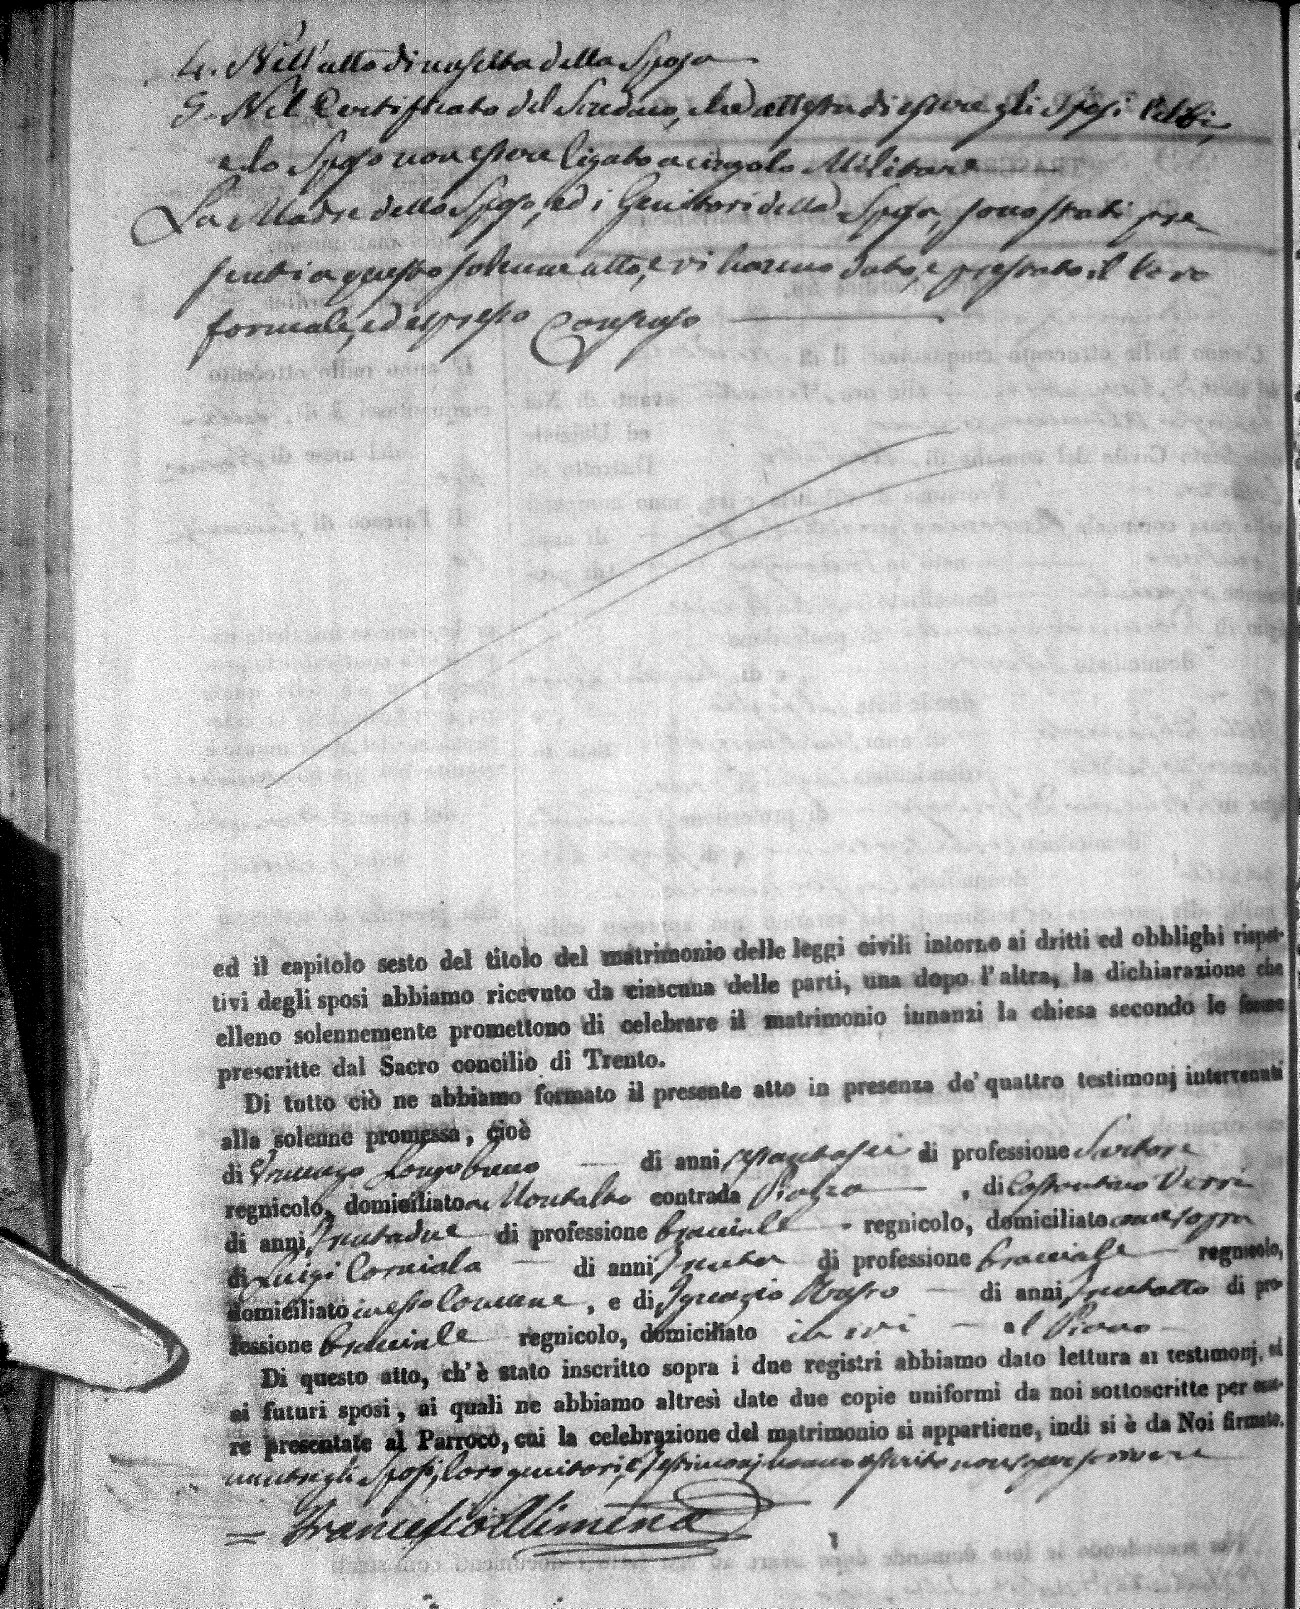 4. Nell'atto di nascita della Sposa
5. Nel Certificato del Sindaco, che attesta di essere gli Sposi
e lo Sposo non essere ligato a cingolo Militare
La Madre dello Sposo, ed i Genitori della Sposa, sono stati pre-
senti a questo solenne atto, e vi hanno dato, e prestato il loro
formale, ed espresso Consenso
ed il capitolo sesto del titolo del matrimonio delle leggi civili intorno ai dritti ed obblighi rispet-
tivi degli sposi abbiamo ricevuto da ciascuna delle parti, una dopo l'altra, la dichiarazione che
elleno solennemente promettono di celebrare il matrimonio innanzi la chiesa secondo le forme
prescritte dal Sacro concilio di Trento.
Di tutto ciò ne abbiamo formato il presente atto in presenza de' quattro testimonj intervenuti
alla solenne promessa, cioè
di Vincenzo Longobucco di anni di professione Sartore
regnicolo, domiciliato in Montalto contrada Piazza, di Costantino
di anni trentadue di professione bracciale regnicolo, domiciliato come sopra
di Luigi Corniola di anni trenta di professione bracciale regnicolo,
domiciliato in esso Comune, e di Ignazio Russo di anni trentotto di pro-
fessione bracciale regnicolo, domiciliato ivi al
Di questo atto, ch'è stato inscritto sopra i due registri abbiamo dato lettura ai testimonj, ed
ai futuri sposi, ai quali ne abbiamo altresì date due copie uniformi da noi sottoscritte per esse-
re presentate al Parroco, cui la celebrazione del matrimonio si appartiene, indi si è da Noi firmato,
gli Sposi, loro genitori, e testimonj hanno asserito non saper scrivere
= Francesco Alimena